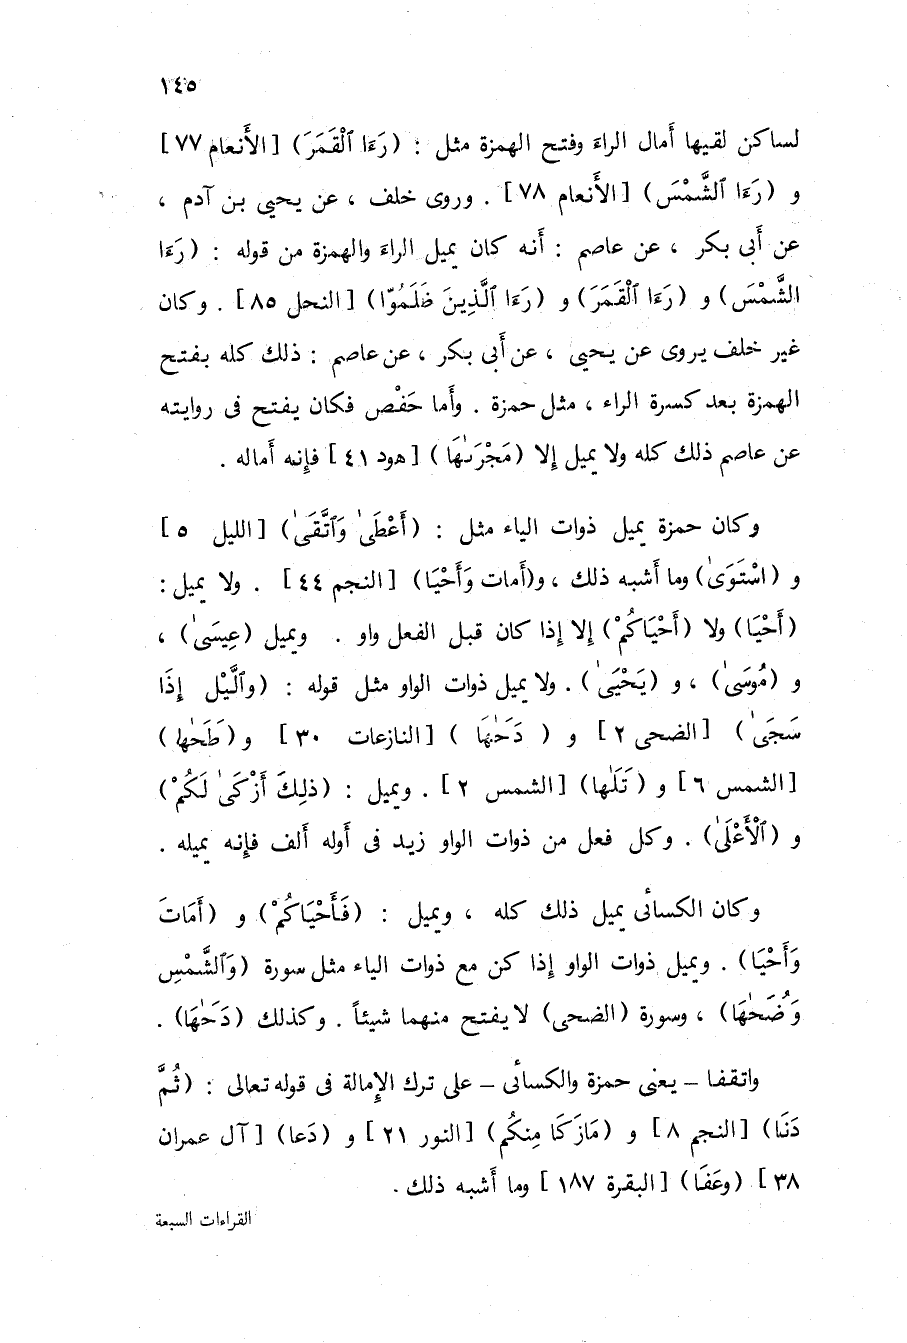 ١٤٥
لساكن لقيها أمال الراءَ وفتح الهمزة مثل : (رَءَا ٱلْقَمَرَ) [الأنعام ٧٧]
و (رَءَا ٱلشَّمْسَ) [الأنعام ٧٨] . وروى خلف ، عن يحيى بن آدم ،
عن أبى بكر ، عن عاصم : أنه كان يميل الراءَ والهمزة من قوله : (رَءَا
الشَّمْسَ) و (رَءَا ٱلْقَمَرَ) و (رَءَا ٱلَّذِينَ ظَلَمُوّا) [النحل ٨٥] . وكان
غير خلف يروى عن يحيى ، عن أبى بكر ، عن عاصم : ذلك كله بفتح
الهمزة بعد كسرة الراء ، مثل حمزة . وأما حَفْص فكان يفتح فى روايته
عن عاصم ذلك كله ولا يميل إلا (مَجْرَىٰهَا) [هود ٤١] فإنه أماله .
وكان حمزة يميل ذوات الياء مثل : (أَعْطَىٰ وَٱتَّقَىٰ) [الليل ٥]
و (اسْتَوَىٰ) وما أشبه ذلك ، و(أَمات وَأَحْيَا) [النجم ٤٤] . ولا يميل :
(أَحْيَا) ولا (أَحْيَاكُمْ) إلا إذا كان قبل الفعل واو . ويميل (عِيسَىٰ) ،
و (مُوسَىٰ) ، و (يَحْيَىٰ) . ولا يميل ذوات الواو مثل قوله : (وٱلَّيْل إِذَا
سَجَىٰ) [الضحى ٢] و ( دَحَىٰهَا ) [النازعات ٣٠] و (طَحَىٰها)
[الشمس ٦] و (تَلَىٰها) [الشمس ٢] . ويميل : (ذلِكَ أَزْكَىٰ لَكُمْ)
و (ٱلْأَعْلَىٰ) . وكل فعل من ذوات الواو زيد فى أوله ألف فإنه يميله .
وكان الكسائى يميل ذلك كله ، ويميل : (فَأَحْيَاكُمْ) و (أَمَاتَ
وَأَحْيَا) . ويميل ذوات الواو إذا كن مع ذوات الياء مثل سورة (وَٱلشَّمْسِ
وَضُحَىٰهَا) ، وسورة (الضحى) لا يفتح منهما شيئاً . وكذلك (دَحَىٰهَا) .
واتقفا – يعنى حمزة والكسائى – على ترك الإمالة فى قوله تعالى : (ثُمَّ
دَنَا) [النجم ٨] و (مَازَكَا مِنكُم) [النور ٢١] و (دَعا) [آل عمران
٣٨] (وعَفَا) [البقرة ١٨٧] وما أشبه ذلك .
القراءات السبعة